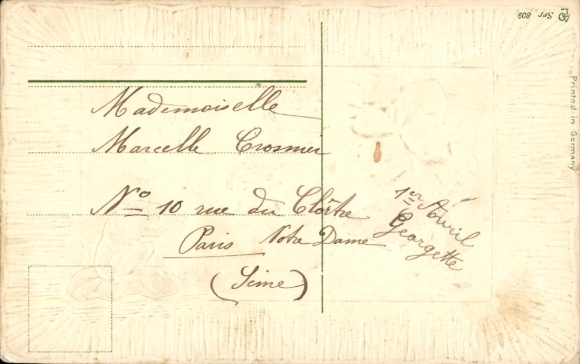 Ser 809
Printed in Germany
Mademoiselle
Marcelle Crosnier
Nº 10 rue du Cloître
Notre Dame
Paris
(Seine)
1er Avril
Georgette